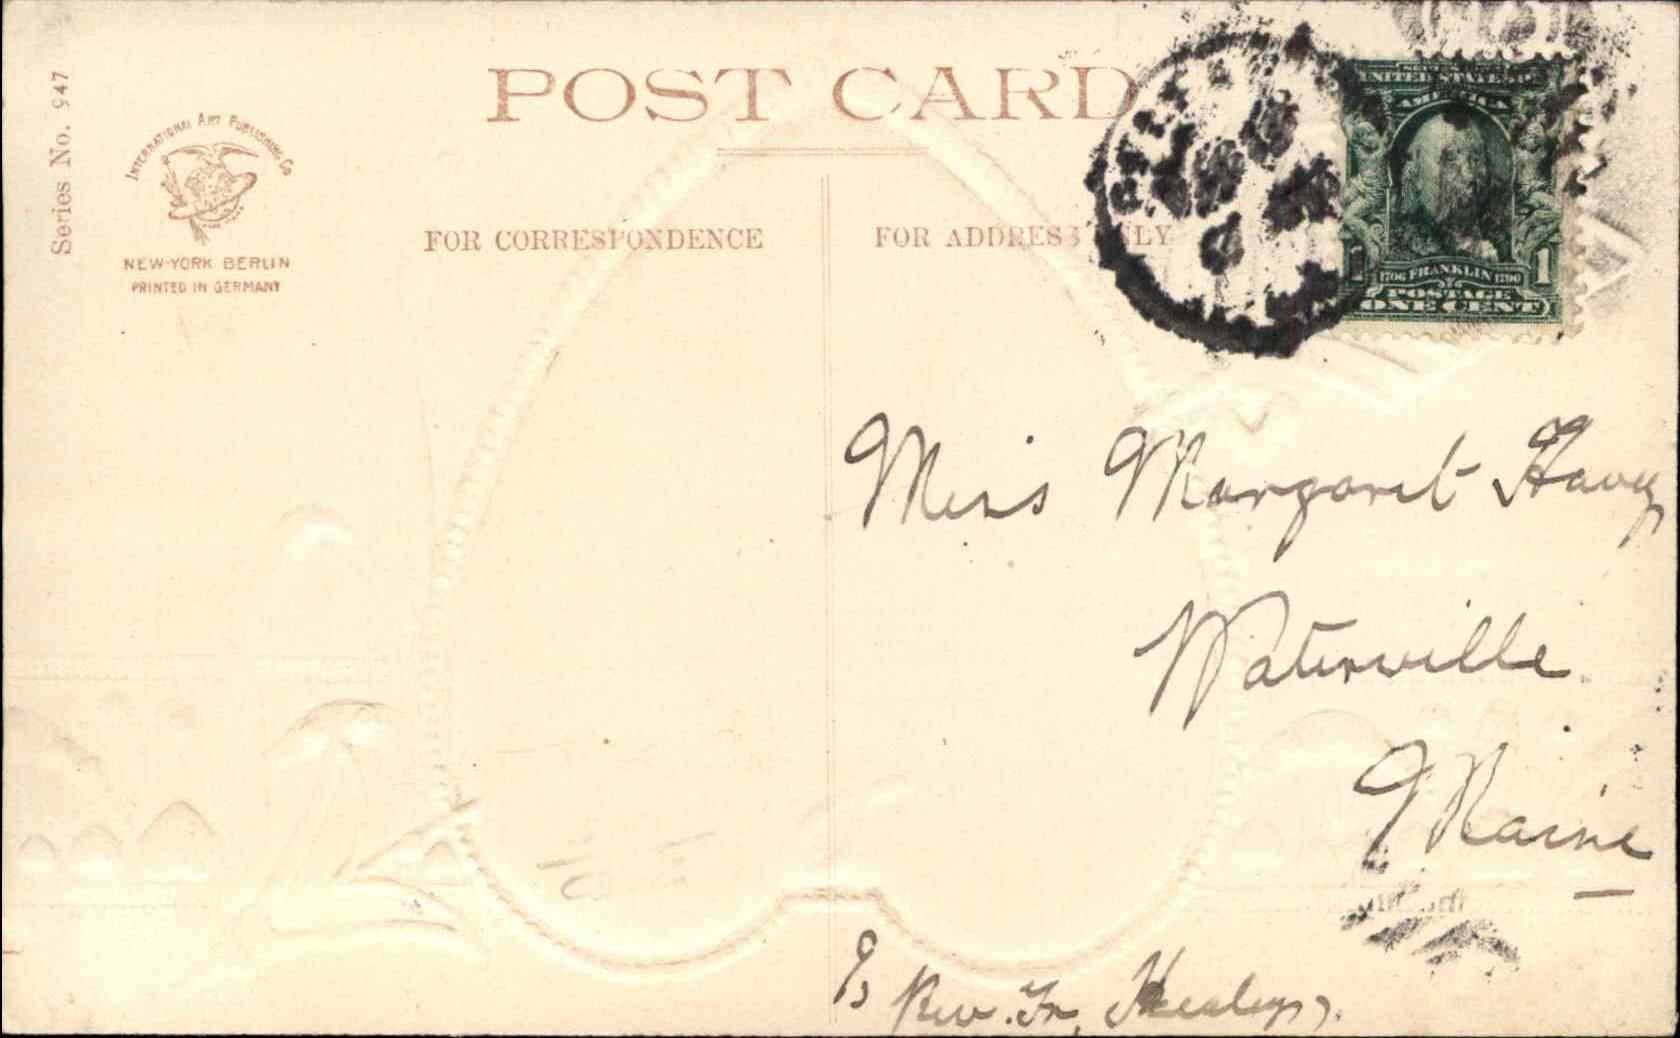 POST CARD
Series No. 947
INTERNATIONAL ART PUBLISHING CO
NEW-YORK BERLIN
PRINTED IN GERMANY
FOR CORRESPONDENCE
FOR ADDRESS ONLY
UNITED STATES OF
AMERICA
1706 FRANKLIN 1790
1 1
POSTAGE
ONE CENT
Miss Margaret
Waterville
Maine
Rev. Fr. Healey